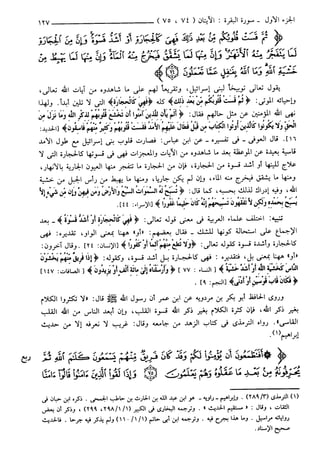 الجزء الأول - سورة البقرة : الآيتان ( ٧٤ ، ٧٥ ) ١٢٧
ثُمَّ قَسَتْ قُلُوبُكُم مِّنْ بَعْدِ ذَٰلِكَ فَهِيَ كَالْحِجَارَةِ أَوْ أَشَدُّ قَسْوَةً وَإِنَّ مِنَ الْحِجَارَةِ
لَمَا يَتَفَجَّرُ مِنْهُ الْأَنْهَارُ وَإِنَّ مِنْهَا لَمَا يَشَّقَّقُ فَيَخْرُجُ مِنْهُ الْمَاءُ وَإِنَّ مِنْهَا لَمَا يَهْبِطُ مِنْ
خَشْيَةِ اللَّهِ وَمَا اللَّهُ بِغَافِلٍ عَمَّا تَعْمَلُونَ
يقول تعالى توبيخاً لبني إسرائيل، وتقريعاً لهم على ما شاهدوه من آيات الله تعالى،
وإحيائه الموتى: ﴿ثم قست قلوبكم من بعد ذلك﴾ كله ﴿فهي كالحجارة﴾ التي لا تلين أبداً. ولهذا
نهى الله المؤمنين عن مثل حالهم فقال: ﴿ألم يأن للذين آمنوا أن تخشع قلوبهم لذكر الله وما نزل من
الحق ولا يكونوا كالذين أوتوا الكتاب من قبل فطال عليهم الأمد فقست قلوبهم وكثير منهم فاسقون﴾ [الحديد:
١٦]. قال العوفي - في تفسيره - عن ابن عباس: فصارت قلوب بني إسرائيل مع طول الأمد
قاسية بعيدة عن الموعظة بعد ما شاهدوه من الآيات والمعجزات فهي في قسوتها كالحجارة التي لا
علاج للينها أو أشد قسوة من الحجارة، فإن من الحجارة ما تتفجر منها العيون الجارية بالأنهار،
ومنها ما يشقق فيخرج منه الماء، وإن لم يكن جارياً، ومنها ما يهبط من رأس الجبل من خشية
الله، وفيه إدراك لذلك بحسبه، كما قال: ﴿تسبح له السموات السبع والأرض ومن فيهن وإن من شيء إلا
يسبح بحمده ولكن لا تفقهون تسبيحهم إنه كان حليما غفورا﴾ [الإسراء: ٤٤].
تنبيه: اختلف علماء العربية في معنى قوله تعالى: ﴿فهي كالحجارة أو أشد قسوة﴾ - بعد
الإجماع على استحالة كونها للشك - فقال بعضهم: «أو» ههنا بمعنى الواو، تقديره: فهي
كالحجارة وأشد قسوة كقوله تعالى: ﴿ولا تطع منهم آثما أو كفورا﴾ [الإنسان: ٢٤]. وقال آخرون:
«أو» ههنا بمعنى بل، فتقديره: فهي كالحجارة بل أشد قسوة، وكقوله: ﴿إذا فريق منهم يخشون
الناس كخشية الله أو أشد خشية﴾ [النساء: ٧٧] ﴿وأرسلناه إلى مائة ألف أو يزيدون﴾ [الصافات: ١٤٧]
﴿فكان قاب قوسين أو أدنى﴾ [النجم: ٩].
وروى الحافظ أبو بكر بن مردويه عن ابن عمر أن رسول الله ﷺ قال: «لا تكثروا الكلام
بغير ذكر الله، فإن كثرة الكلام بغير ذكر الله قسوة القلب، وإن أبعد الناس من الله القلب
القاسي». رواه الترمذي في كتاب الزهد من جامعه وقال: غريب لا نعرفه إلا من حديث
إبراهيم(١).
أَفَتَطْمَعُونَ أَن يُؤْمِنُوا لَكُمْ وَقَدْ كَانَ فَرِيقٌ مِّنْهُمْ يَسْمَعُونَ كَلَامَ اللَّهِ ثُمَّ ربع
يُحَرِّفُونَهُ مِنْ بَعْدِ مَا عَقَلُوهُ وَهُمْ يَعْلَمُونَ ٧٥ وَإِذَا لَقُوا الَّذِينَ آمَنُوا قَالُوا آمَنَّا
(١) الترمذي (٢٨٩/٣). وإبراهيم - راويه - هو ابن عبد الله بن الحارث بن حاطب الجمحي. ذكره ابن حبان في
الثقات، وقال: «مستقيم الحديث». وترجمه البخاري في الكبير (٢٩٨/١/١، ٢٩٩)، وذكر أن بعض
رواياته مراسيل. وما هذا بجرح فيه. وترجمه ابن أبي حاتم (١١٠/١/١) ولم يذكر فيه جرحاً. فالحديث
صحيح الإسناد.